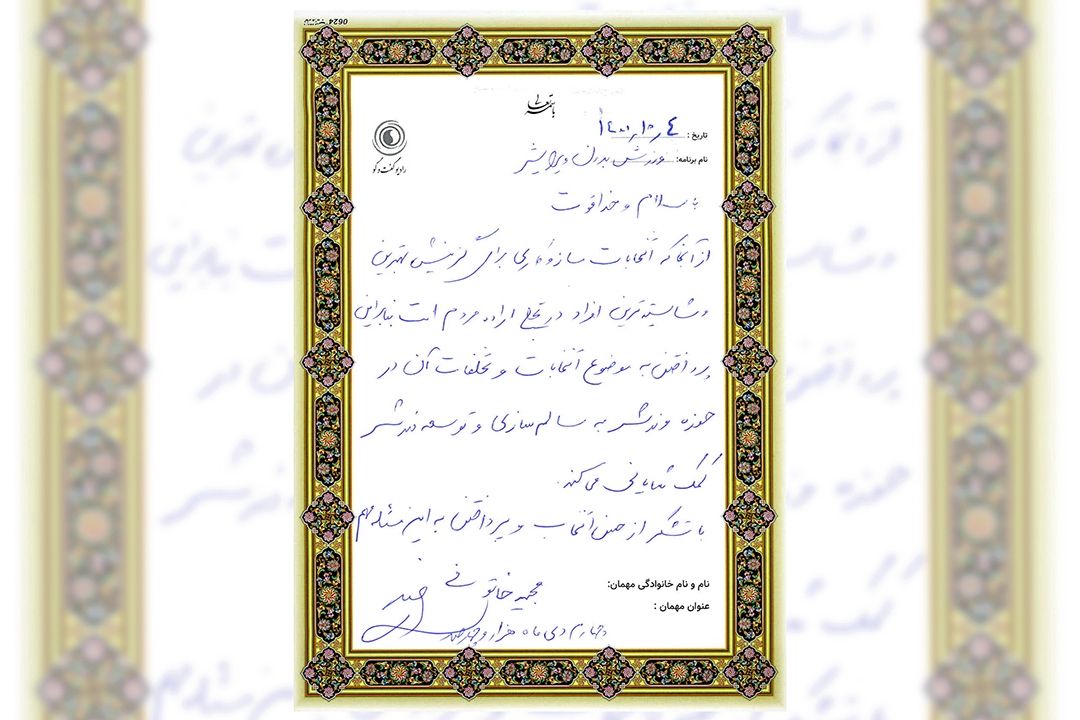 0624
باسمه تعالی
رادیو گفت و گو
تاریخ: ٤ / ۱۰ / ۱۴۰۰
نام برنامه: ورزش بدون ویرایش
با سلام و خداقوت
از آنجا که انتخابات سازوکاری برای گزینش بهترین
و شایسته‌ترین افراد در تجلی اراده مردم است بنابراین
پرداختن به موضوع انتخابات و تخلفات آن در
حوزه ورزش به سالم سازی و توسعه ورزش
کمک شایانی می‌کند.
با تشکر از حسن انتخاب و پرداختن به این مسئله مهم
نام و نام خانوادگی مهمان:
مجید خاتونی
عنوان مهمان :
چهارم دی ماه هزار و چهارصد